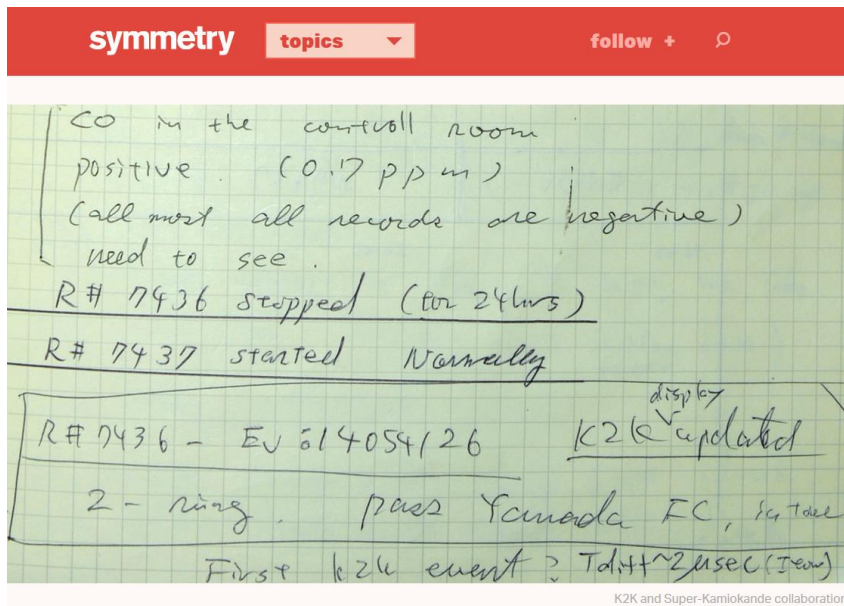 symmetry topics follow +
CO in the controll room
positive. (0.7 ppm)
(all most all records are negative)
need to see.
R# 7436 stopped (for 24hrs)
R# 7437 started Normally
display
R# 7436 - EV:14054126 K2K updated
2-ring. pass Yamada FC,
First k2k event? Tdiff~2μsec
K2K and Super-Kamiokande collaboration